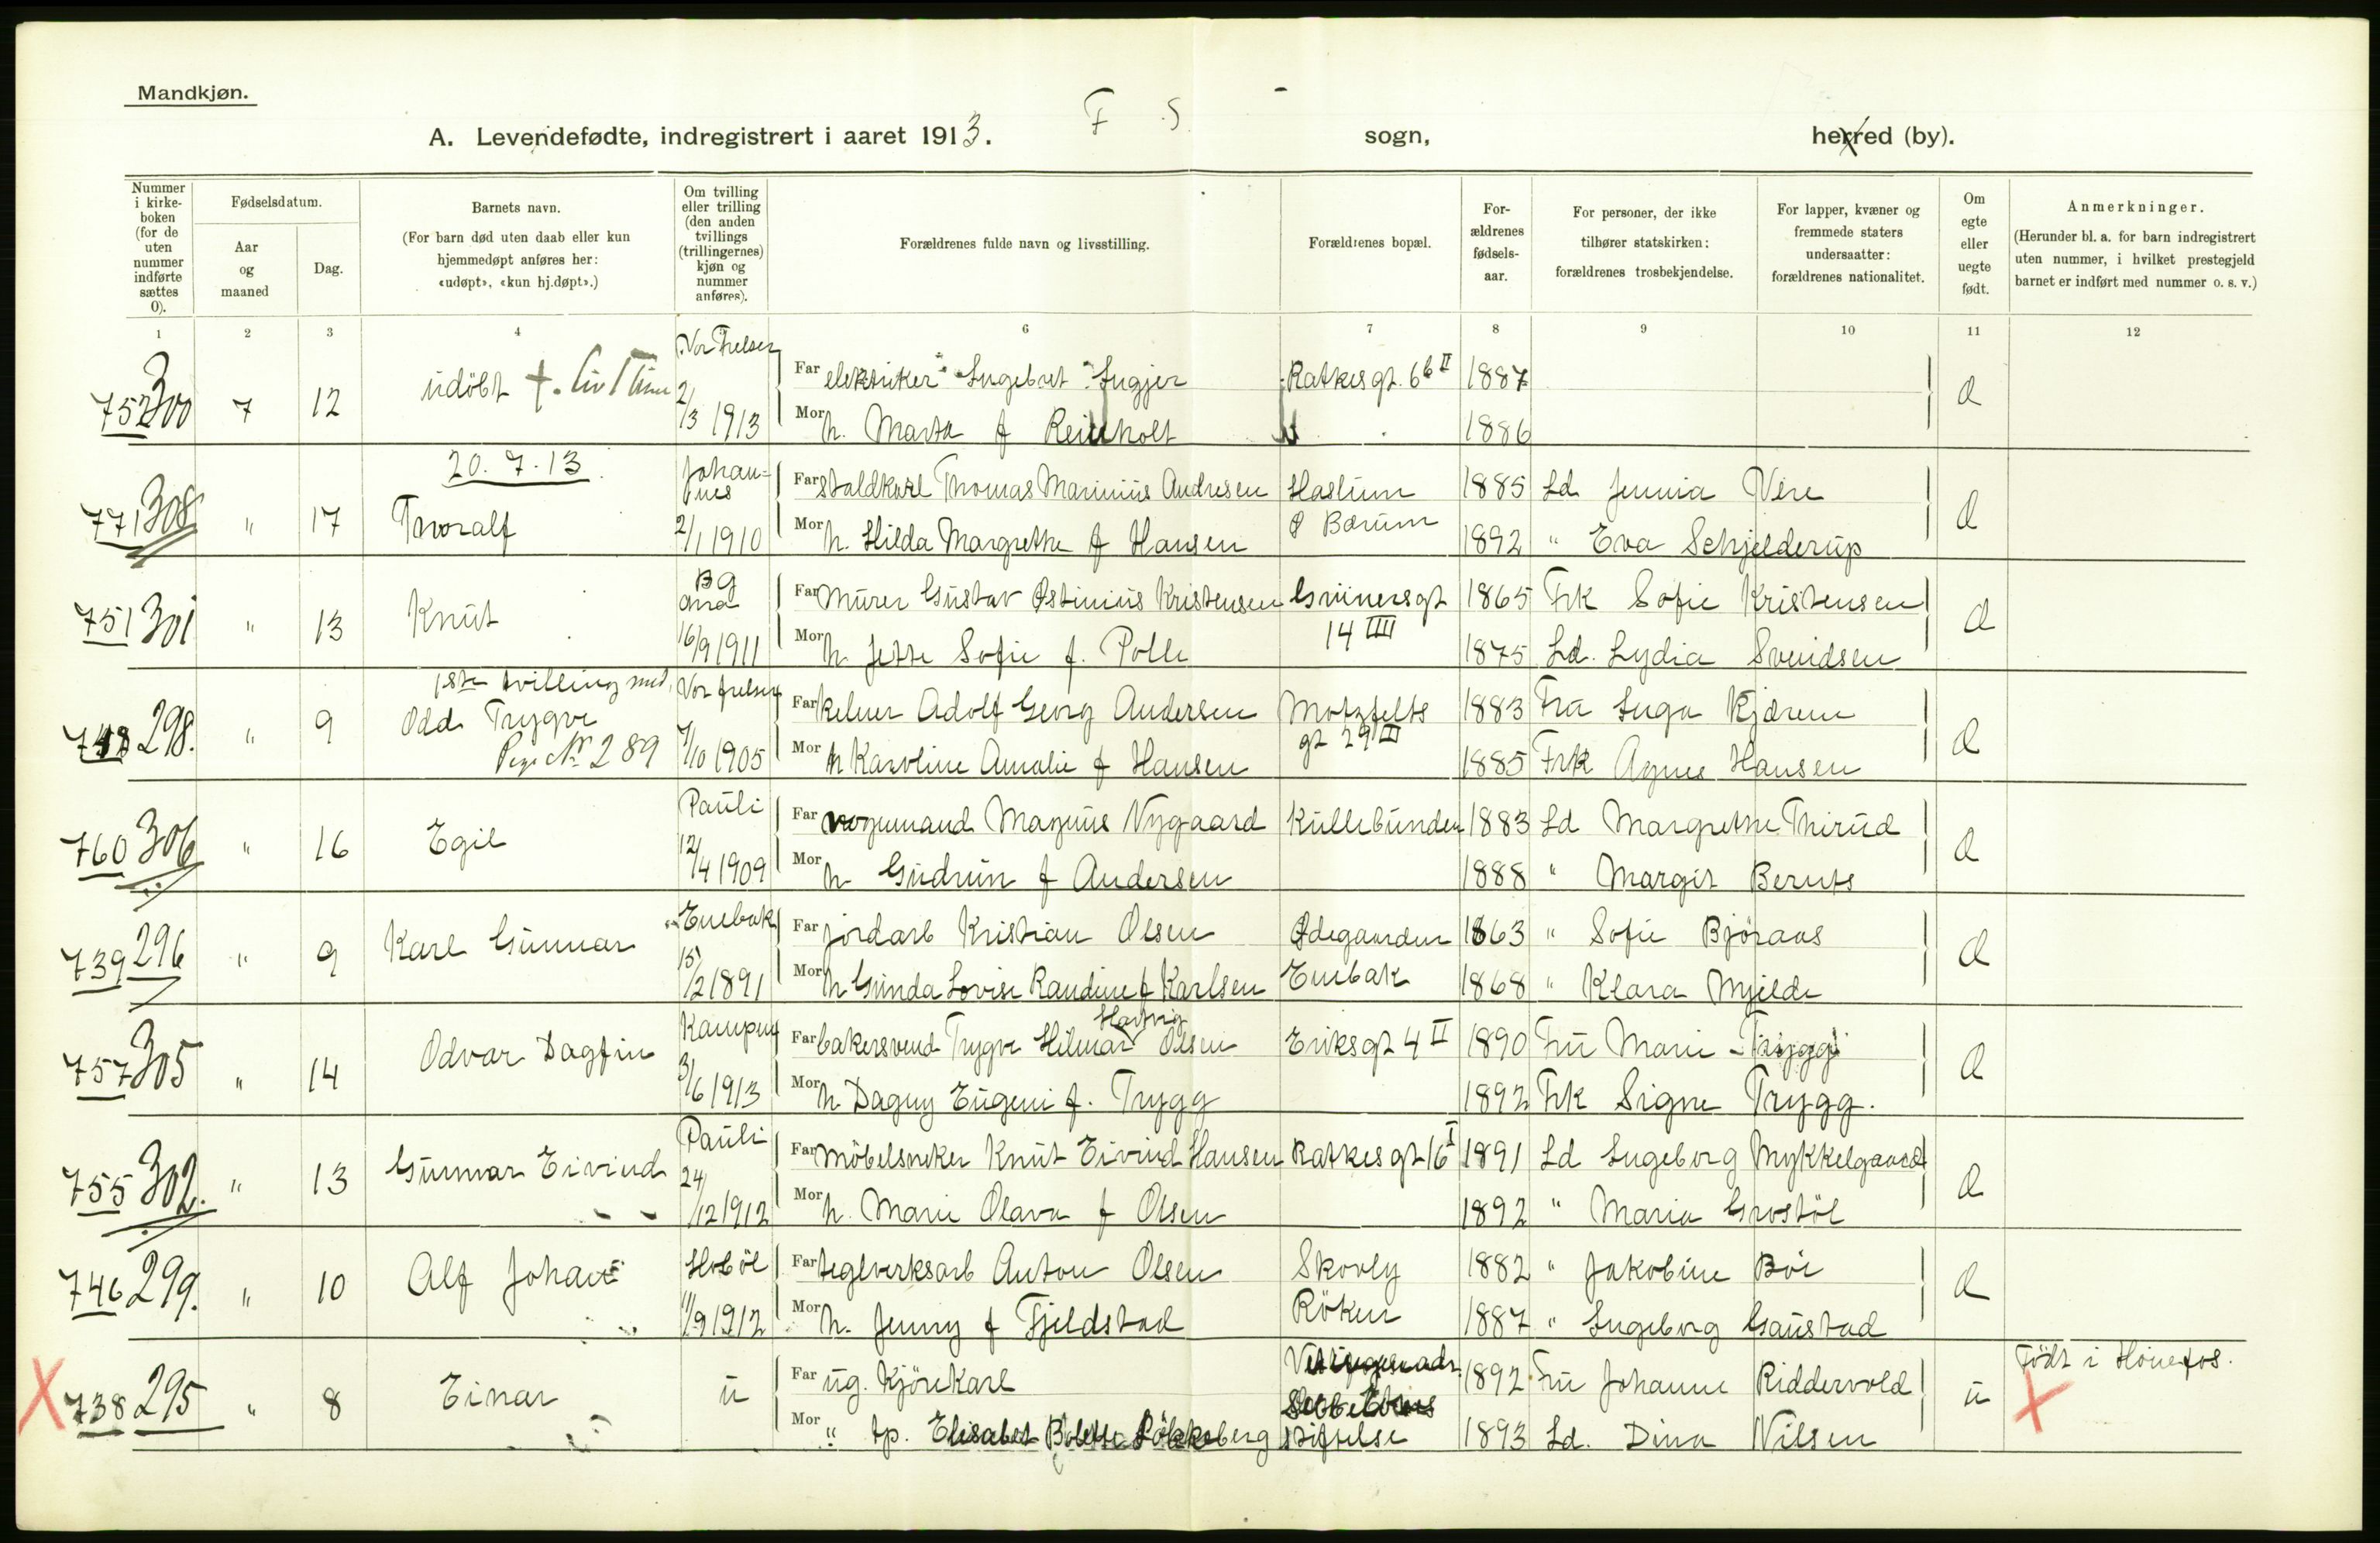 Mandkjøn.
A. Levendefødte, indregistrert i aaret 1913. F S sogn, herred (by).
Nummer i kirke-boken (for de uten nummer indførte sættes 0).
Fødselsdatum.
Aar og maaned
Dag.
Barnets navn.
(For barn død uten daab eller kun hjemmedøpt anføres her: «udøpt», «kun hj.døpt».)
Om tvilling eller trilling (den anden tvillings (trillingernes) kjøn og nummer anføres).
Forældrenes fulde navn og livsstilling.
Forældrenes bopæl.
For-ældrenes fødsels-aar.
For personer, der ikke tilhører statskirken: forældrenes trosbekjendelse.
For lapper, kvæner og fremmede staters undersaatter: forældrenes nationalitet.
Om egte eller uegte født.
Anmerkninger.
(Herunder bl. a. for barn indregistrert uten nummer, i hvilket prestegjeld barnet er indført med nummer o. s. v.)
1 2 3 4 6 7 8 9 10 11 12
752 300 7 12 udöbt †. Vor Frelser 2/3 1913 Far elektriker Ingebret Ingjer Ratkesgt. 6b II 1887
Mor h. Marta f Reinholt 1886
20.7.13
771 308 " 17 Thoralf Johannes 2/1 1910 Far staldkarl Thomas Marinius Andresen Haslum 1885 Ld Jennia Vere
Mor h. Hilda Margrethe f Hansen Bærum 1892 " Eva Schjelderup
751 301 " 13 Knut 16/9 1911 Far Murer Gustav Østinius Kristensen Grünersgt 14 IIII 1865 Frk Sofie Kristensen
Mor h. Jette Sofie f. Polle 1875 Ld. Lydia Svendsen
1ste tvilling med
748 298. " 9 Odd Trygve Pige Nr 289 Vor frelser 1/10 1905 Far kelner Adolf Georg Andersen Motzfelts gt 29 III 1883 Fra Inga Kjærem
Mor h Karoline Amalie f Hansen 1885 Frk Agnes Hansen
760 306 " 16 Egil Pauli 12/4 1909 Far vognmand Magnus Nygaard Kullebunden 1883 Ld Margrethe Thirud
Mor h Gudrun f Andersen 1888 " Margit Bernts
739 296 " 9 Karl Gunnar Enebak 15/2 1891 Far jordarb Kristian Olsen Ødegaarden 1863 " Sofie Björaas
Mor h Gunda Lovise Randine f Karlsen Enebak 1868 " Klara Mjelde
757 305 " 14 Odvar Dagfin Kampen 3/6 1913 Far bakersvend Trygve Hilmar Hartvig Olsen Eriksgt 4 II 1890 Fru Marie Trygg
Mor h. Dagny Eugeni f. Trygg 1892 Frk Signe Trygg.
755 302. " 13 Gunnar Eivind Pauli 24/12 1912 Far möbelsneker Knut Eivind Hansen Ratkesgt 16 I 1891 Ld Ingeborg Mykkelgaard
Mor h. Marie Olava f Olsen 1892 " Maria Grostöl
746 299. " 10 Alf Johan Hoböl 11/9 1912 Far teglverksarb Anton Olsen Skovly 1882 " Jakobine Böe
Mor h. Jenny f Fjeldstad Röken 1887 " Ingeborg Gaustad
X 738 295 " 8 Einar u Far ug. Kjörekarl 1892 Fru Johanne Riddervold u Födt i Hönefos. X
Mor " tp. Elisabet Bolette stiftelse 1893 Ld. Dina Nilsen